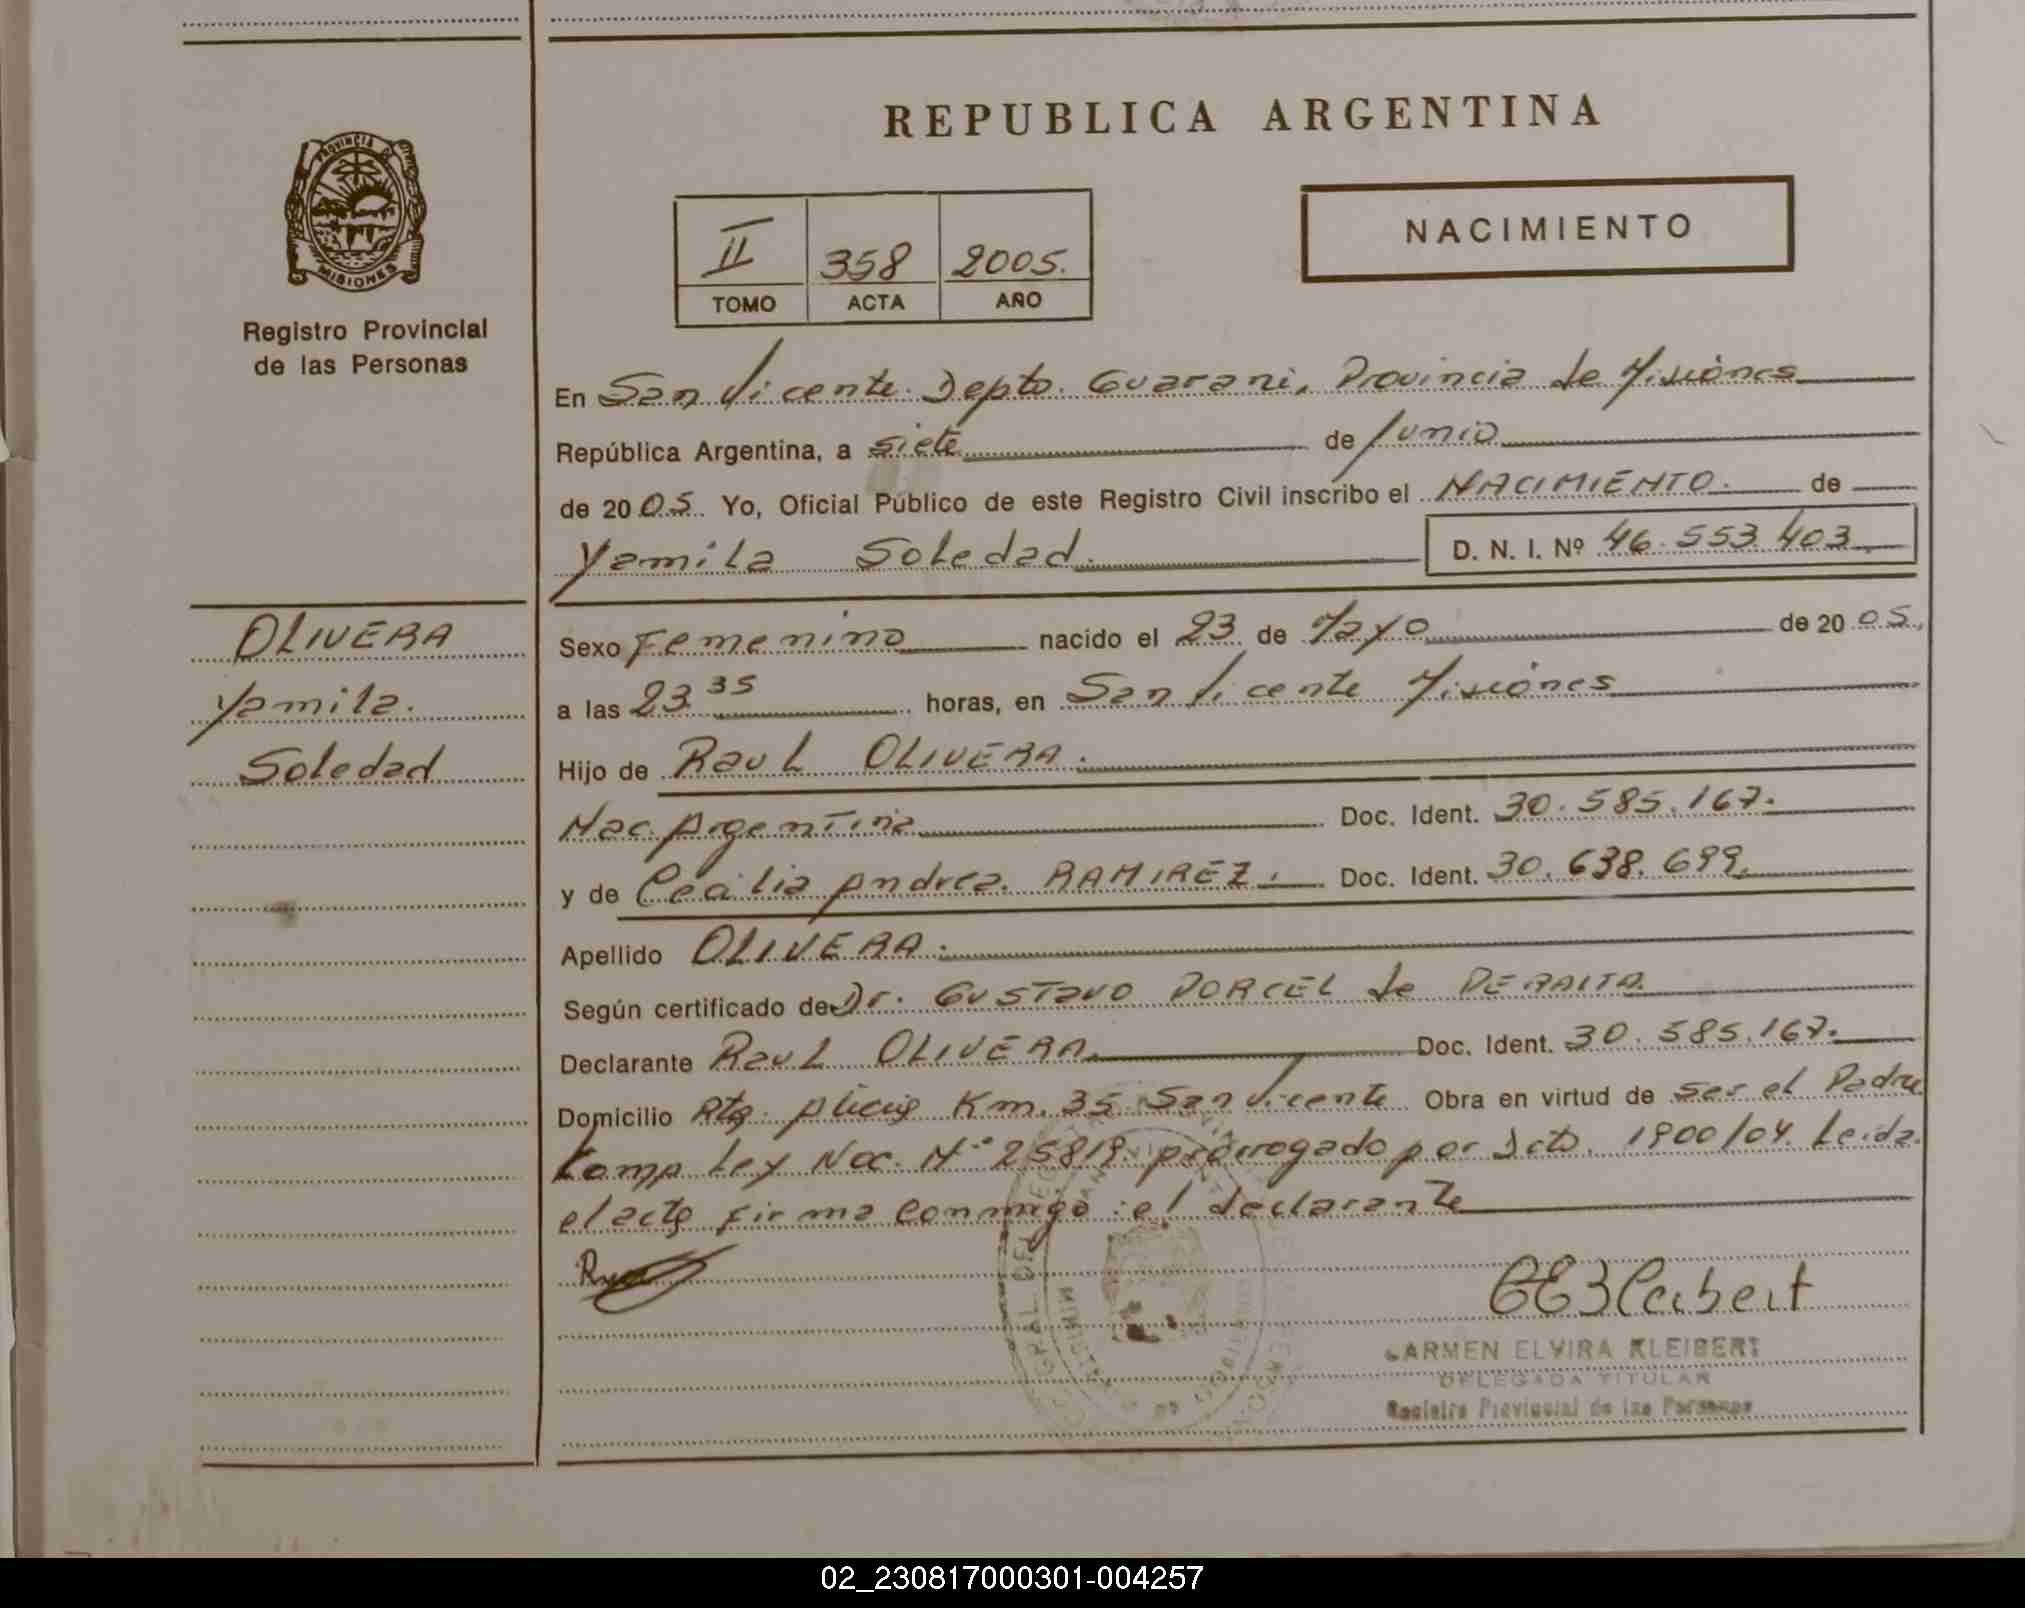 REPUBLICA ARGENTINA
PROVINCIA DE
MISIONES
Registro Provincial
de las Personas
II 358 2005.
TOMO ACTA AÑO
NACIMIENTO
En San Vicente. Depto. Guarani, Provincia de Misiónes
República Argentina, a siete de Junio
de 2005. Yo, Oficial Público de este Registro Civil inscribo el NACIMIENTO. de
Yamila Soledad. D. N. I. Nº 46.553.403
OLIVERA
Yamila.
Soledad
Sexo Femenino nacido el 23 de Mayo de 2005.
a las 23 35 horas, en San Vicente Misiónes
Hijo de Raul OLIVERA.
Nac. Argentina Doc. Ident. 30.585.167.
y de Cecilia Andrea. RAMIREZ. Doc. Ident. 30.638.699.
Apellido OLIVERA.
Según certificado de Dr. Gustavo DORCEL de PERALTA.
Declarante Raul OLIVERA Doc. Ident. 30.585.167.
Domicilio Km. 35. San Vicente Obra en virtud de ser el Padre
Ley Nac. Nº 25819. prórrogado por Dcto. 1900/04. Leida
el acta firma conmigo: el declarante
CARMEN ELVIRA KLEIBERT
DELEGADA TITULAR
Registro Provincial de las Personas
02_230817000301-004257